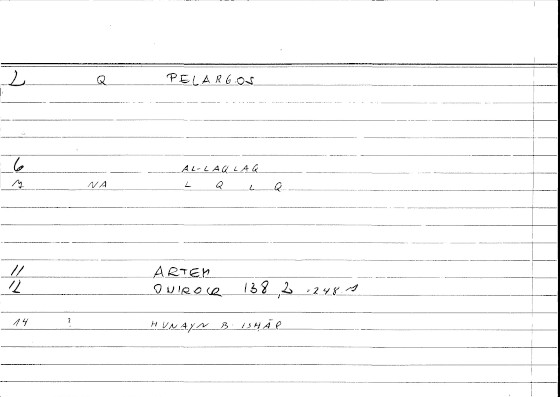 2 Q PELARGOS
6 AL-LAQLAQ
7 NA L Q L Q
11 ARTEM
12 ONIROCR 138, 2 - 248
14 ! HUNAYN B ISHĀQ